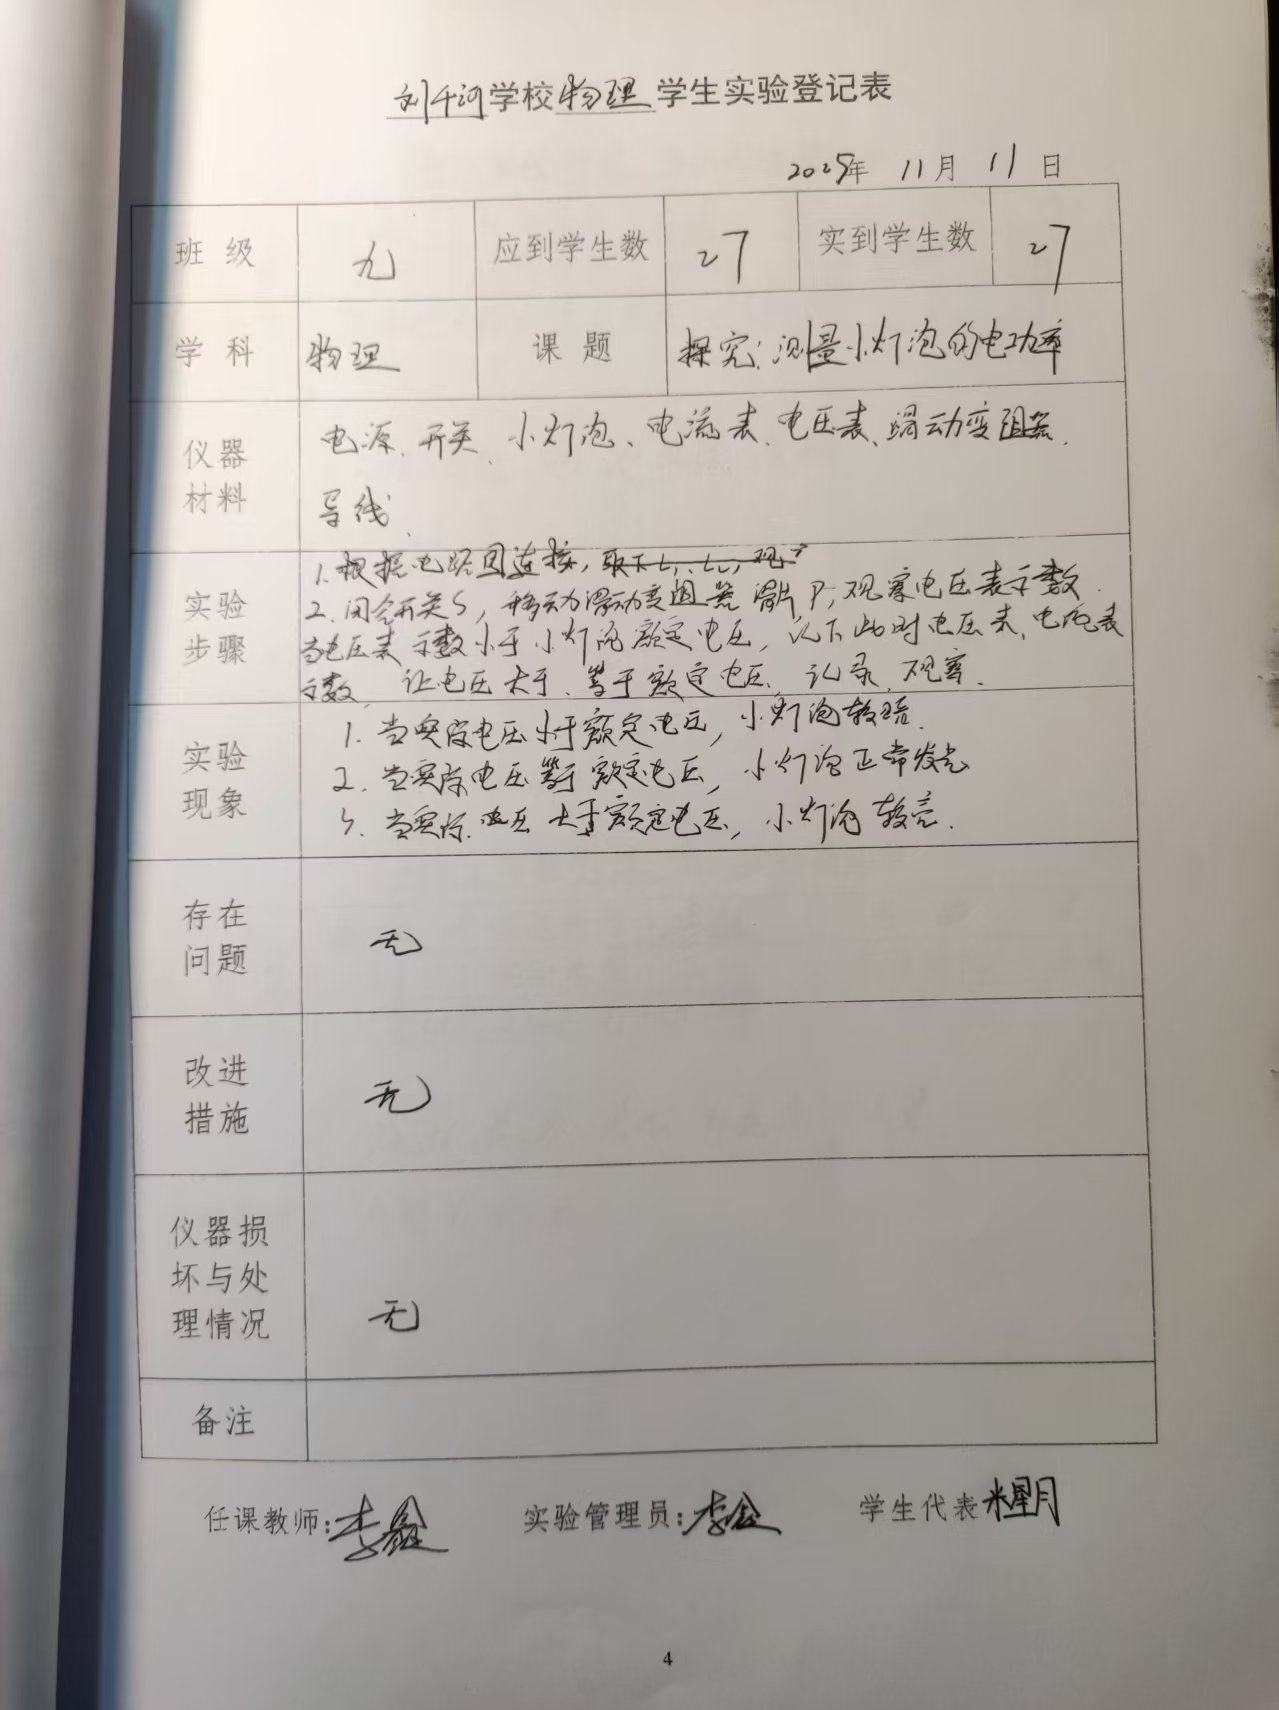 刘千河学校物理学生实验登记表
2025年 11月 11日
班级 九 应到学生数 27 实到学生数 27
学科 物理 课题 探究:测量小灯泡的电功率
仪器材料 电源、开关、小灯泡、电流表、电压表、滑动变阻器、
导线
实验步骤 1.根据电路图连接,取下L₁、L₂,观
2.闭合开关S,移动滑动变阻器滑片P,观察电压表示数.
当电压表示数小于小灯泡额定电压,记下此时电压表、电流表
示数,让电压大于、等于额定电压,记录、观察.
实验现象 1.当实际电压小于额定电压,小灯泡较暗.
2.当实际电压等于额定电压,小灯泡正常发光
3.当实际电压大于额定电压,小灯泡较亮.
存在问题 无
改进措施 无
仪器损坏与处理情况 无
备注
任课教师:李鑫 实验管理员:李鑫 学生代表 星月
4